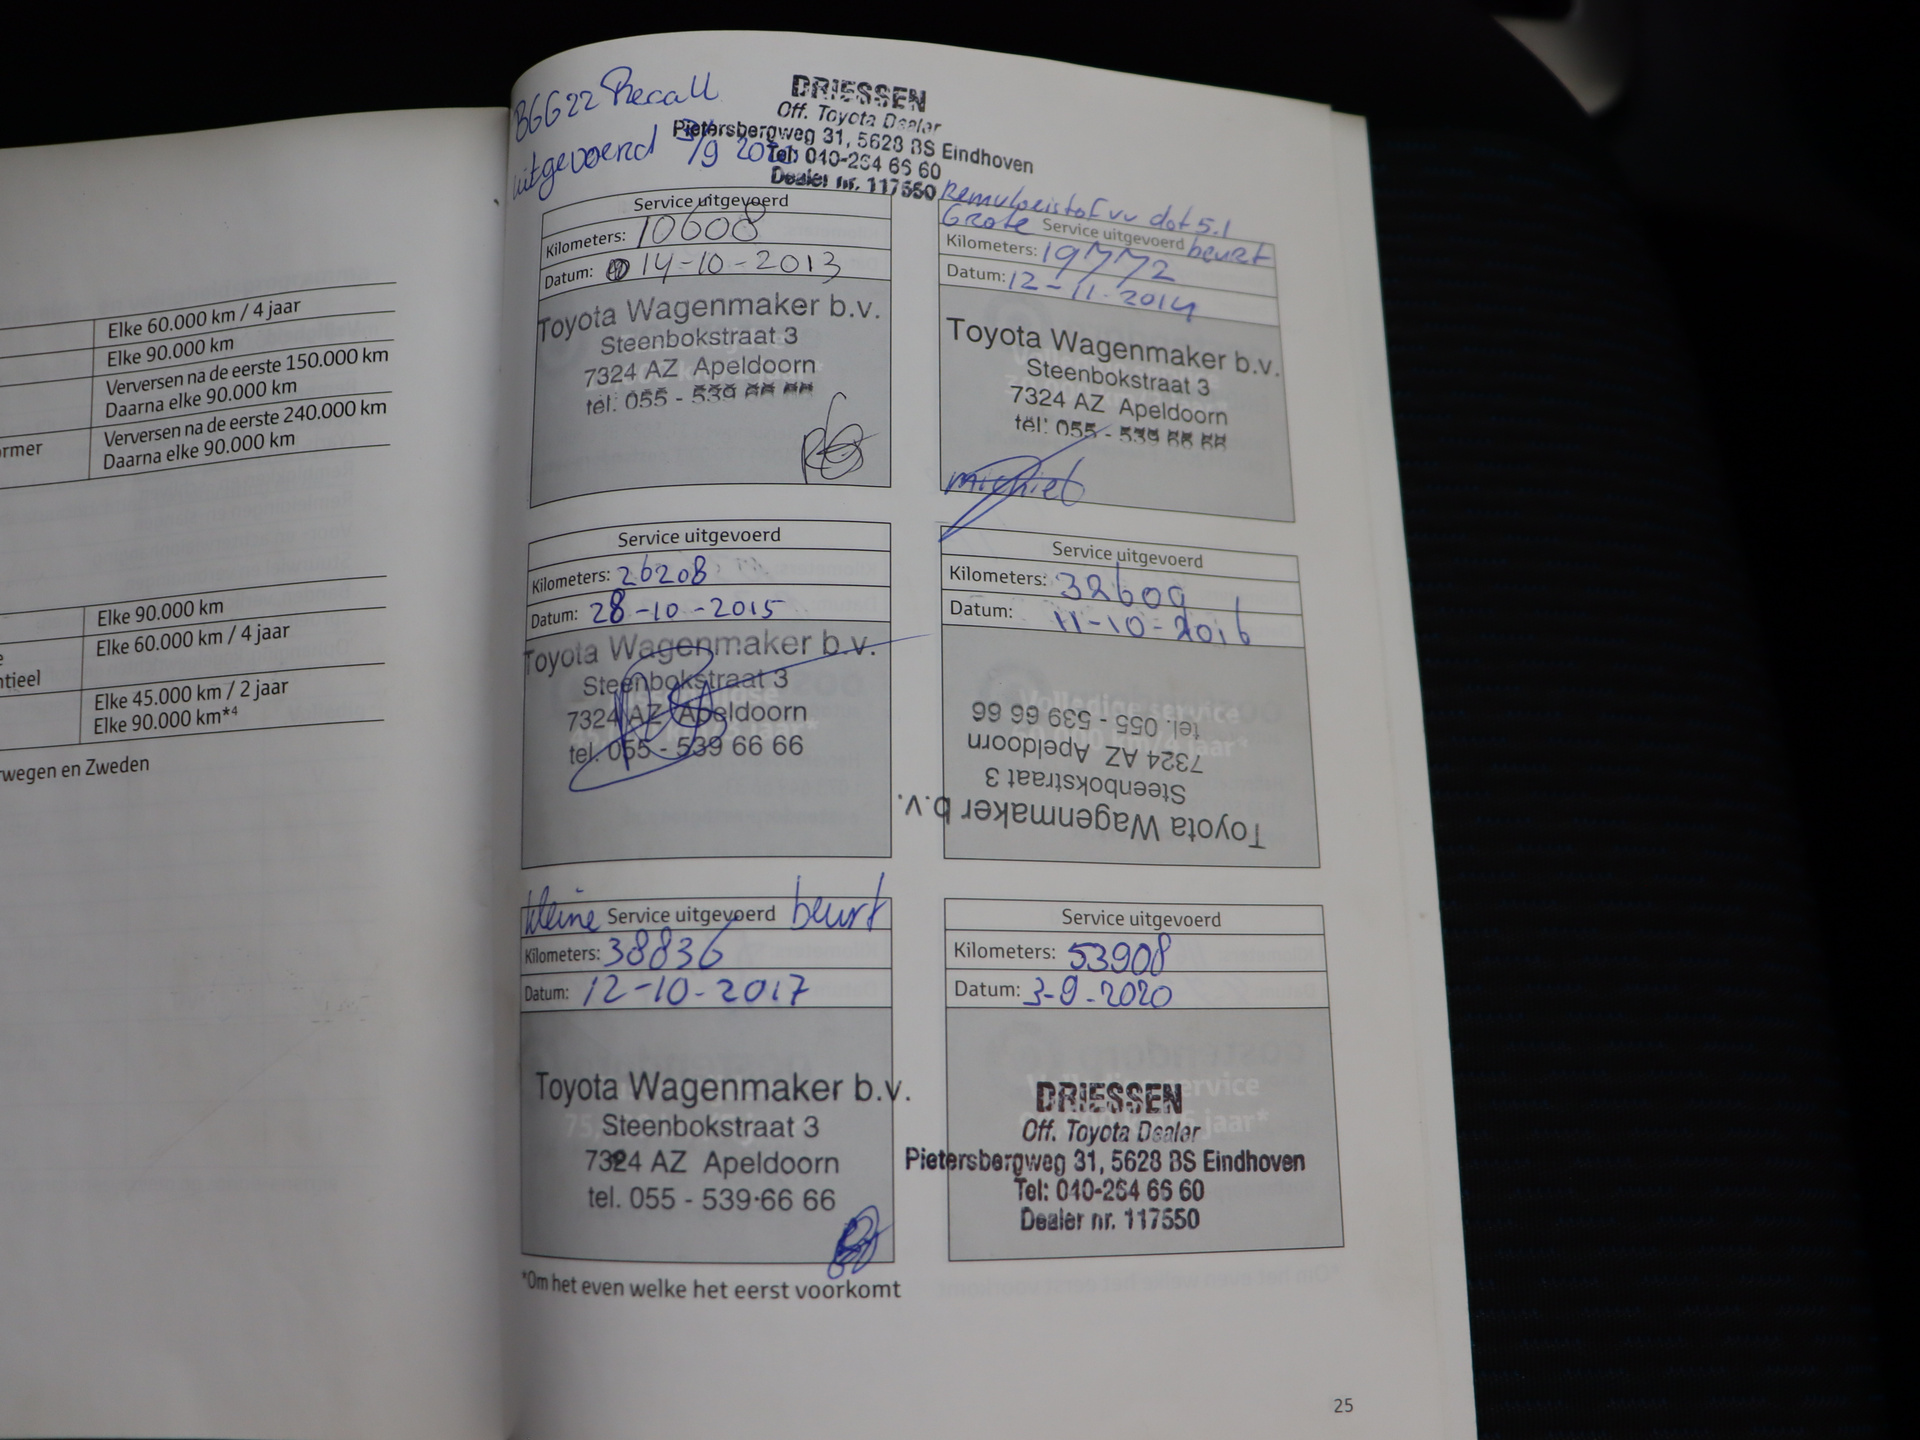 Elke 60.000 km / 4 jaar
Elke 90.000 km
Verversen na de eerste 150.000 km
Daarna elke 90.000 km
ormer
Verversen na de eerste 240.000 km
Daarna elke 90.000 km
Elke 90.000 km
e
ntieel
Elke 60.000 km / 4 jaar
Elke 45.000 km / 2 jaar
Elke 90.000 km*4
rwegen en Zweden
BGG22 Recall
uitgevoerd 3/9
DRIESSEN
Off. Toyota Dealer
Pietersbergweg 31, 5628 BS Eindhoven
Tel: 040-264 66 60
Dealer nr. 117550
Service uitgevoerd
Kilometers: 10608
Datum: 14-10-2013
Toyota Wagenmaker b.v.
Steenbokstraat 3
7324 AZ Apeldoorn
tel. 055 - 539 66 66
Remvloeistof vv dot 5.1
Grote Service uitgevoerd beurt
Kilometers: 19772
Datum: 12-11-2014
Toyota Wagenmaker b.v.
Steenbokstraat 3
7324 AZ Apeldoorn
tel. 055 - 539 66 66
michiel
Service uitgevoerd
Kilometers: 26208
Datum: 28-10-2015
Toyota Wagenmaker b.v.
Steenbokstraat 3
7324 AZ Apeldoorn
tel. 055 - 539 66 66
Service uitgevoerd
Kilometers: 32609
Datum: 11-10-2016
Toyota Wagenmaker b.v.
Steenbokstraat 3
7324 AZ Apeldoorn
tel. 055 - 539 66 66
kleine Service uitgevoerd beurt
Kilometers: 38836
Datum: 12-10-2017
Toyota Wagenmaker b.v.
Steenbokstraat 3
7324 AZ Apeldoorn
tel. 055 - 539 66 66
Service uitgevoerd
Kilometers: 53908
Datum: 3-9-2020
DRIESSEN
Off. Toyota Dealer
Pietersbergweg 31, 5628 BS Eindhoven
Tel: 040-264 66 60
Dealer nr. 117550
*Om het even welke het eerst voorkomt
25